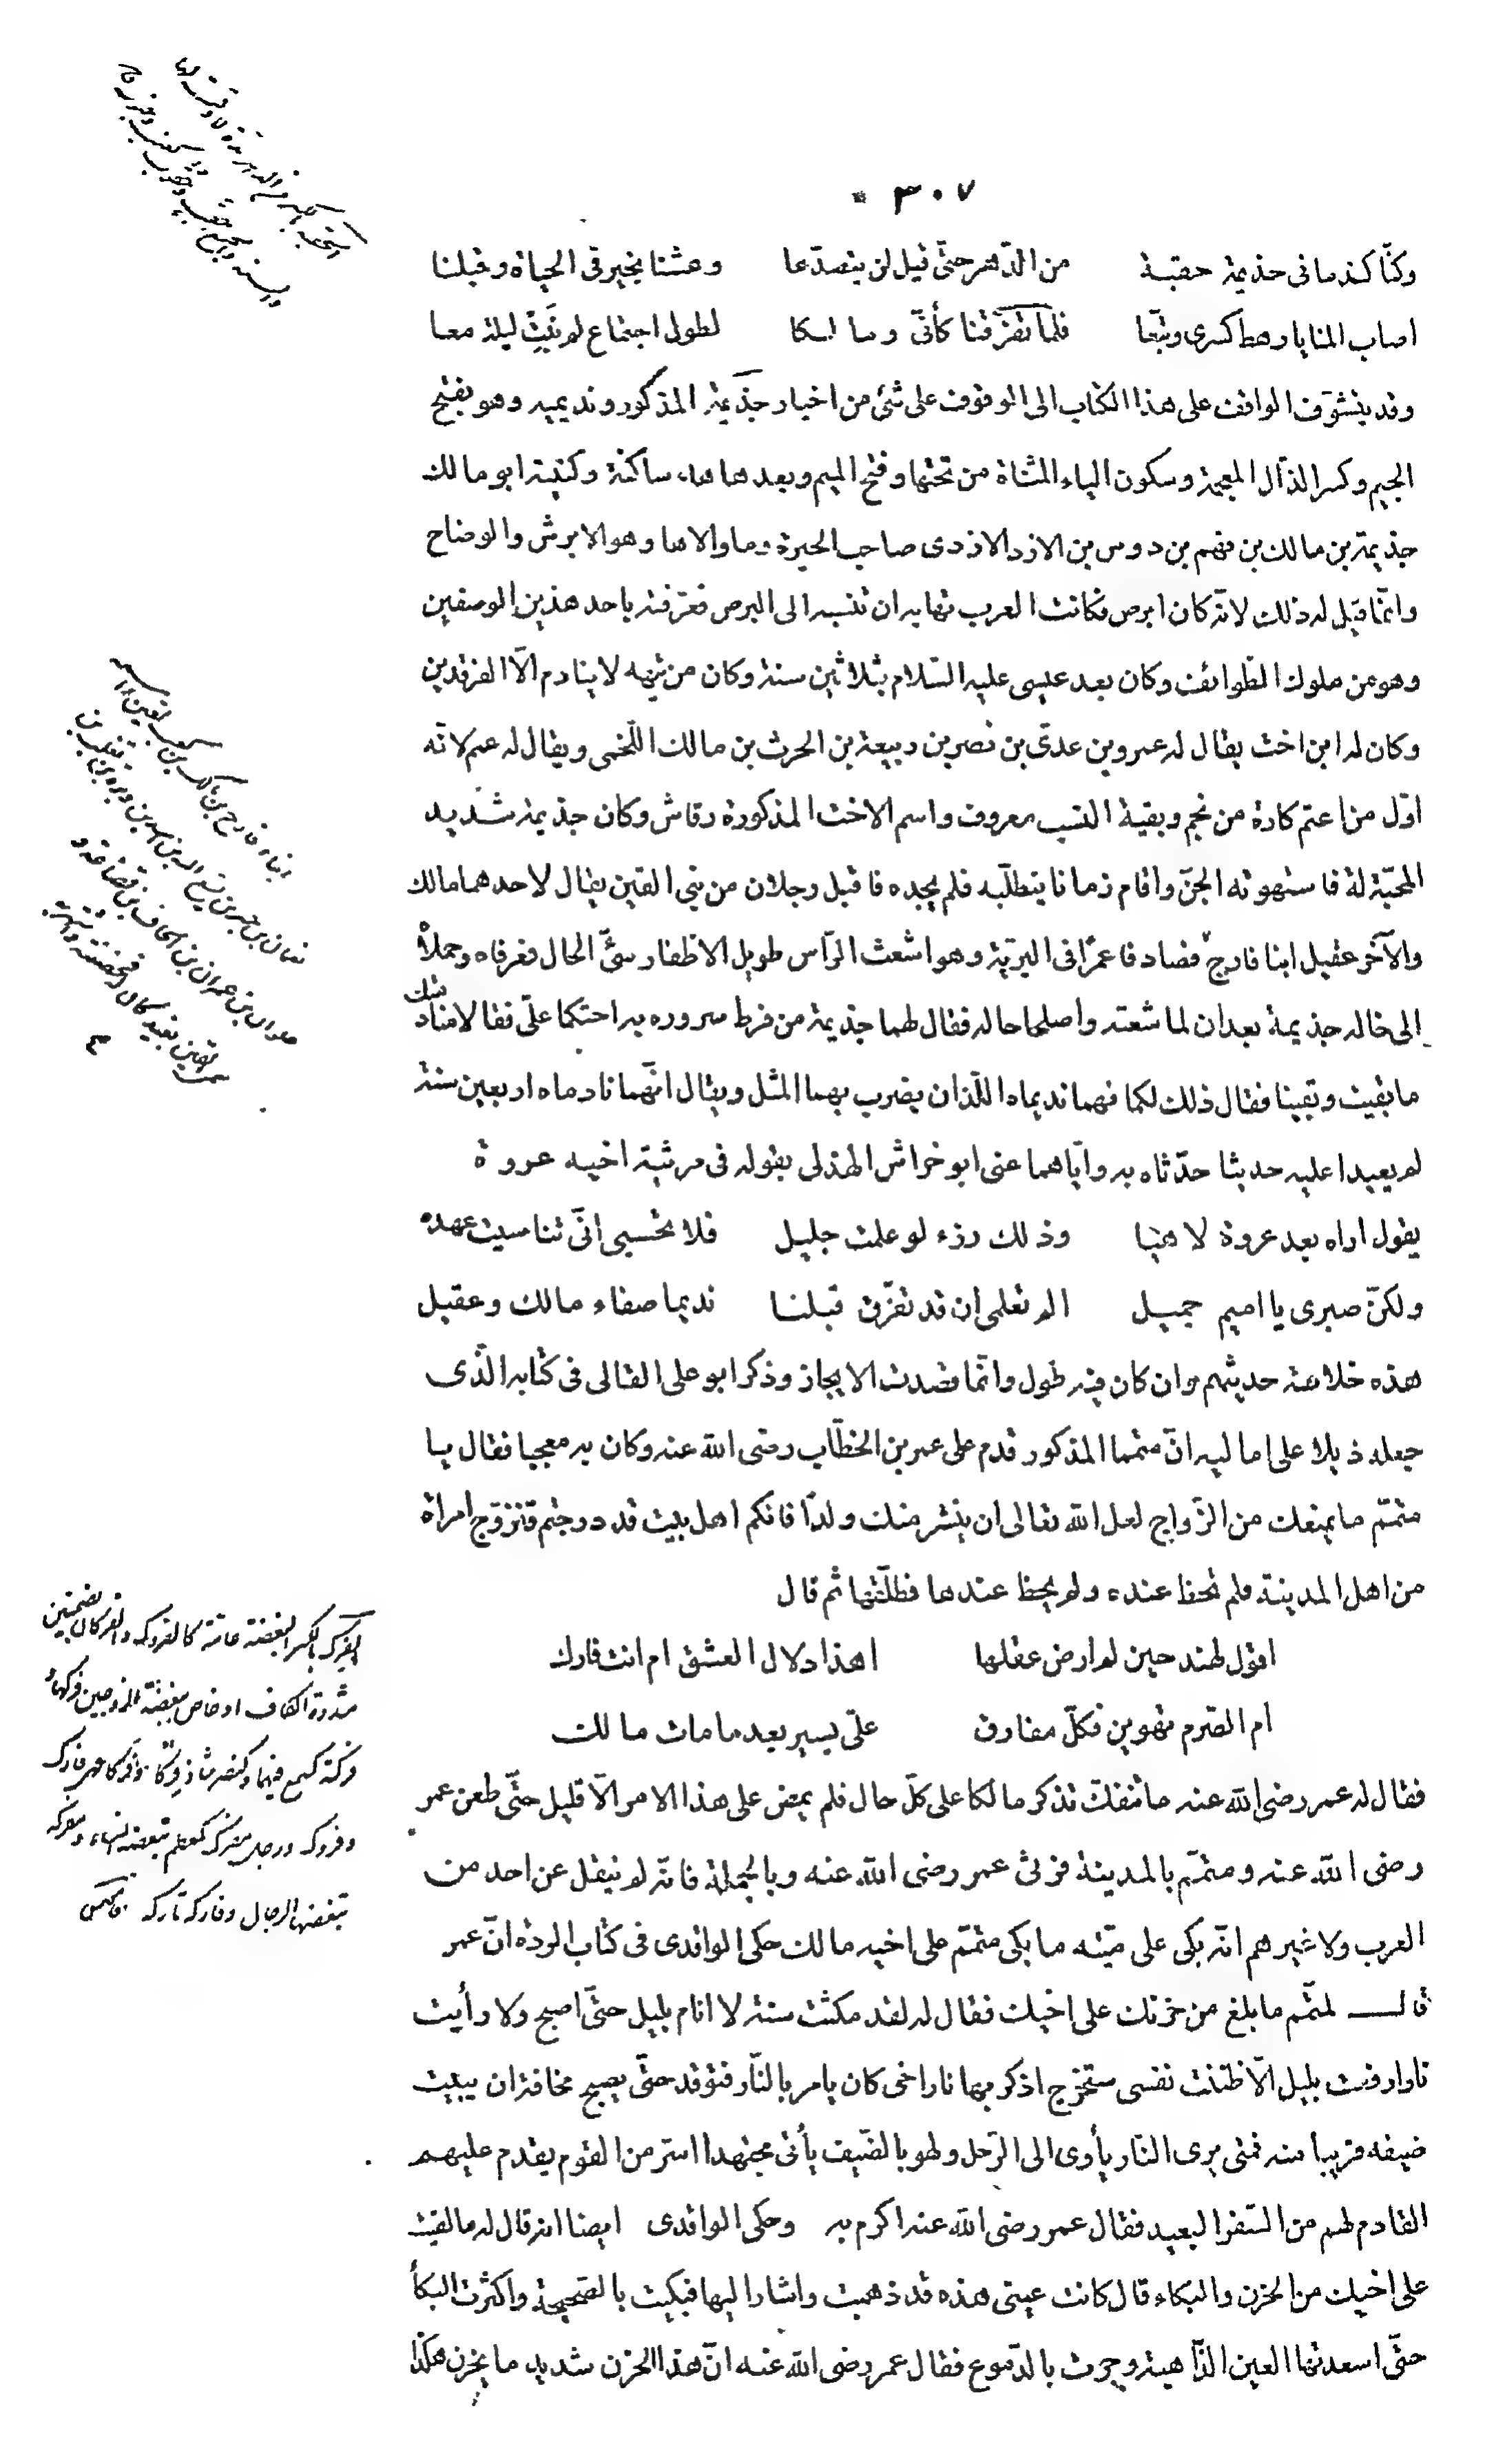 ٣٠٧
وكنّا كندمانى جذيمة حقبة من الدّهر حتّى قيل لن يتصدّعا وعشنا بخير فى الحياة وقبلنا
اصاب المنايا رهط كسرى وتبّعا فلمّا تفرّقنا كأنّى ومالكا لطول اجتماع لم نَبِتْ ليلة معا
وقد يتشوّف الواقف على هذا الكتاب الى الوقوف على شئ من اخبار جذيمة المذكور ونديميه وهو بفتح
الجيم وكسر الذّال المعجمة وسكون الياء المثناة من تحتها وفتح الميم وبعدها هاء ساكنة وكنيته ابو مالك
جذيمة بن مالك بن فهم بن دوس بن الازد الازدى صاحب الحيرة وما والاها وهو الابرش والوضاح
وانّما قيل له ذلك لانّه كان ابرص فكانت العرب تهابه ان تنسبه الى البرص فعرّفته باحد هذين الوصفين
وهو من ملوك الطّوائف وكان بعد عيسى عليه السّلام بثلاثين سنة وكان من تيهه لا ينادم الّا الفرقدين
وكان له ابن اخت يقال له عمرو بن عدىّ بن نصر بن ربيعة بن الحرث بن مالك اللّخمى ويقال له عم لانّه
اوّل من اعتم كارة من نجم وبقية النسب معروف واسم الاخت المذكورة رقاش وكان جذيمة شديد
المحبّة له فاستهوته الجنّ واقام زمانا يتطلّبه فلم يجده فاقبل رجلان من بنى القين يقال لاحدهما مالك
والآخر عقيل ابنا فارج فصادفا عمرًا فى البريّة وهو اشعث الرّأس طويل الاظفار سئّ الحال فعرفاه وحملاه
الى خاله جذيمة بعد ان لما شعثه واصلحا حاله فقال لهما جذيمة من فرط سروره به احتكما علىّ فقالا منادمتك
ما بقيت وبقينا فقال ذلك لكما فهما نديماه اللّذان يضرب بهما المثل ويقال انّهما نادماه اربعين سنة
لم يعيدا عليه حديثا حدّثاه به وايّاهما عنى ابو خراش الهذلى بقوله فى مرثية اخيه عروة
يقول اراه بعد عروة لاهيا وذلك رزء لو علمت جليل فلا تحسبى انّى تناسيت عهده
ولكنّ صبرى يا اميم جميل الم تعلمى ان قد تفرّق قبلنا نديما صفاء مالك وعقيل
هذه خلاصة حديثهم وان كان فيه طول وانّما قصدت الايجاز وذكر ابو على القالى فى كتابه الّذى
جعله ذيلا على اماليه انّ متمما المذكور قدم على عمر بن الخطّاب رضى الله عنه وكان به معجبا فقال يا
متمّم ما يمنعك من الزّواج لعل الله تعالى ان ينشر منك ولدًا فانكم اهل بيت قد درجتم فتزوّج امراة
من اهل المدينة فلم تحظ عنده ولم يحظ عندها فطلّقها ثم قال
اقول لهند حين لم ارض عقلها اهذا دلال العشق ام انت فارك
ام الصّرم تهوين فكلّ مفارق علىّ يسير بعد ما مات مالك
فقال له عمر رضى الله عنه ما تنفكّ تذكر مالكا على كلّ حال فلم يمض على هذا الامر الّا قليل حتّى طعن عمر
رضى الله عنه ومتمّم بالمدينة فرثى عمر رضى الله عنه وبالجملة فانّه لم ينقل عن احد من
العرب ولا غيرهم انّه بكى على ميّته ما بكى متمّم على اخيه مالك حكى الواقدى فى كتاب الردة انّ عمر
قال لمتمّم ما بلغ من حزنك على اخيك فقال له لقد مكثت سنة لا انام بليل حتّى اصبح ولا رأيت
نارا رفعت بليل الّا ظننت نفسى ستخرج اذكر بها نار اخى كان يامر بالنّار فتوقد حتّى يصبح مخافة ان يبيت
ضيفه قريبا منه فمتى يرى النّار يأوى الى الرّحل ولهو بالضّيف يأتى مجتهدا اسر من القوم يقدم عليهم
القادم لهم من السّفر البعيد فقال عمر رضى الله عنه اكرم به وحكى الواقدى ايضا انه قال له ما لقيت
على اخيك من الحزن والبكاء قال كانت عينى هذه قد ذهبت واشار اليها فبكيت بالصّحيحة واكثرت البكأ
حتّى اسعدتها العين الذّاهبة وجرت بالدّموع فقال عمر رضى الله عنه انّ هذا الحزن شديد ما يحزن هكذا
الفرك بالكسر البغضة عامة كالفروك والفركان بضمتين
مشددة الكاف او خاص ببغضة الزوجين فركها و
فركته كسمع فيهما وكنصر شاذ فركا وفروكا فهى فارك
وفروك ورجل مفرك كمعظم تبغضه النساء ومفركة
تبغضها الرجال وفاركه تاركه قاموس